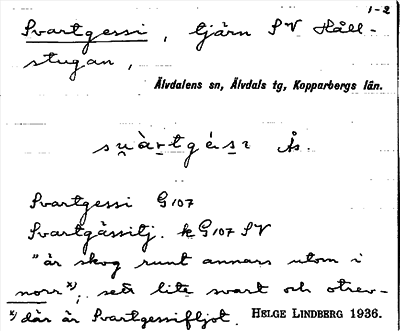 1-2
Svartgessi, tjärn SV Håll-
stugan,
Älvdalens sn, Älvdals tg, Kopparbergs län.
Ås.
Svartgessi G107
Svartgässitj. k G107 SV
"är skog runt annars utom i
norr x); ser lite svart och otrev-
x) där är Svartgessifljot. HELGE LINDBERG 1936.